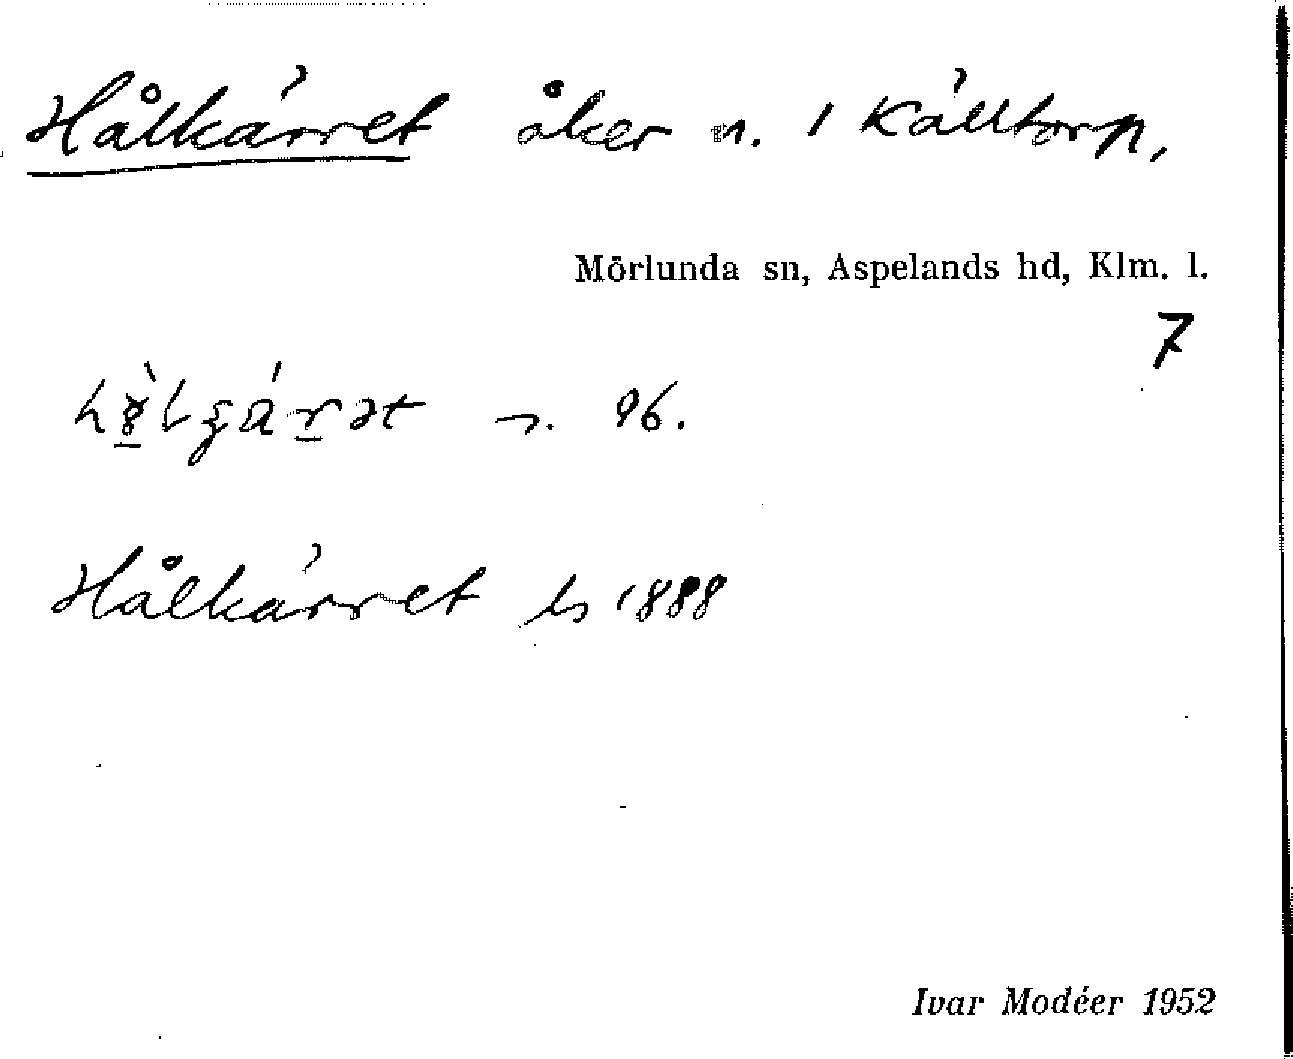 Hålkärret åker n. 1 Källtorp,
Mörlunda sn, Aspelands hd, Klm. l.
7
n. 96.
Hålkärret ls 1888
Ivar Modéer 1952